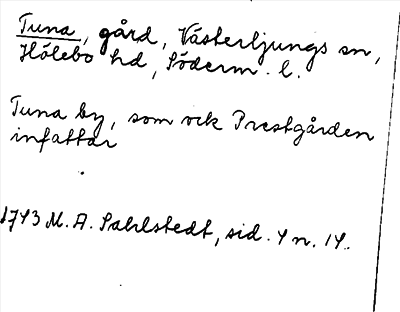 Tuna, gård, Västerljungs sn,
Hölebo hd, Söderm. l.
Tuna by, som ock Prestgården
infattar
1743 M. A. Sahlstedt, sid. 4 n. 14.